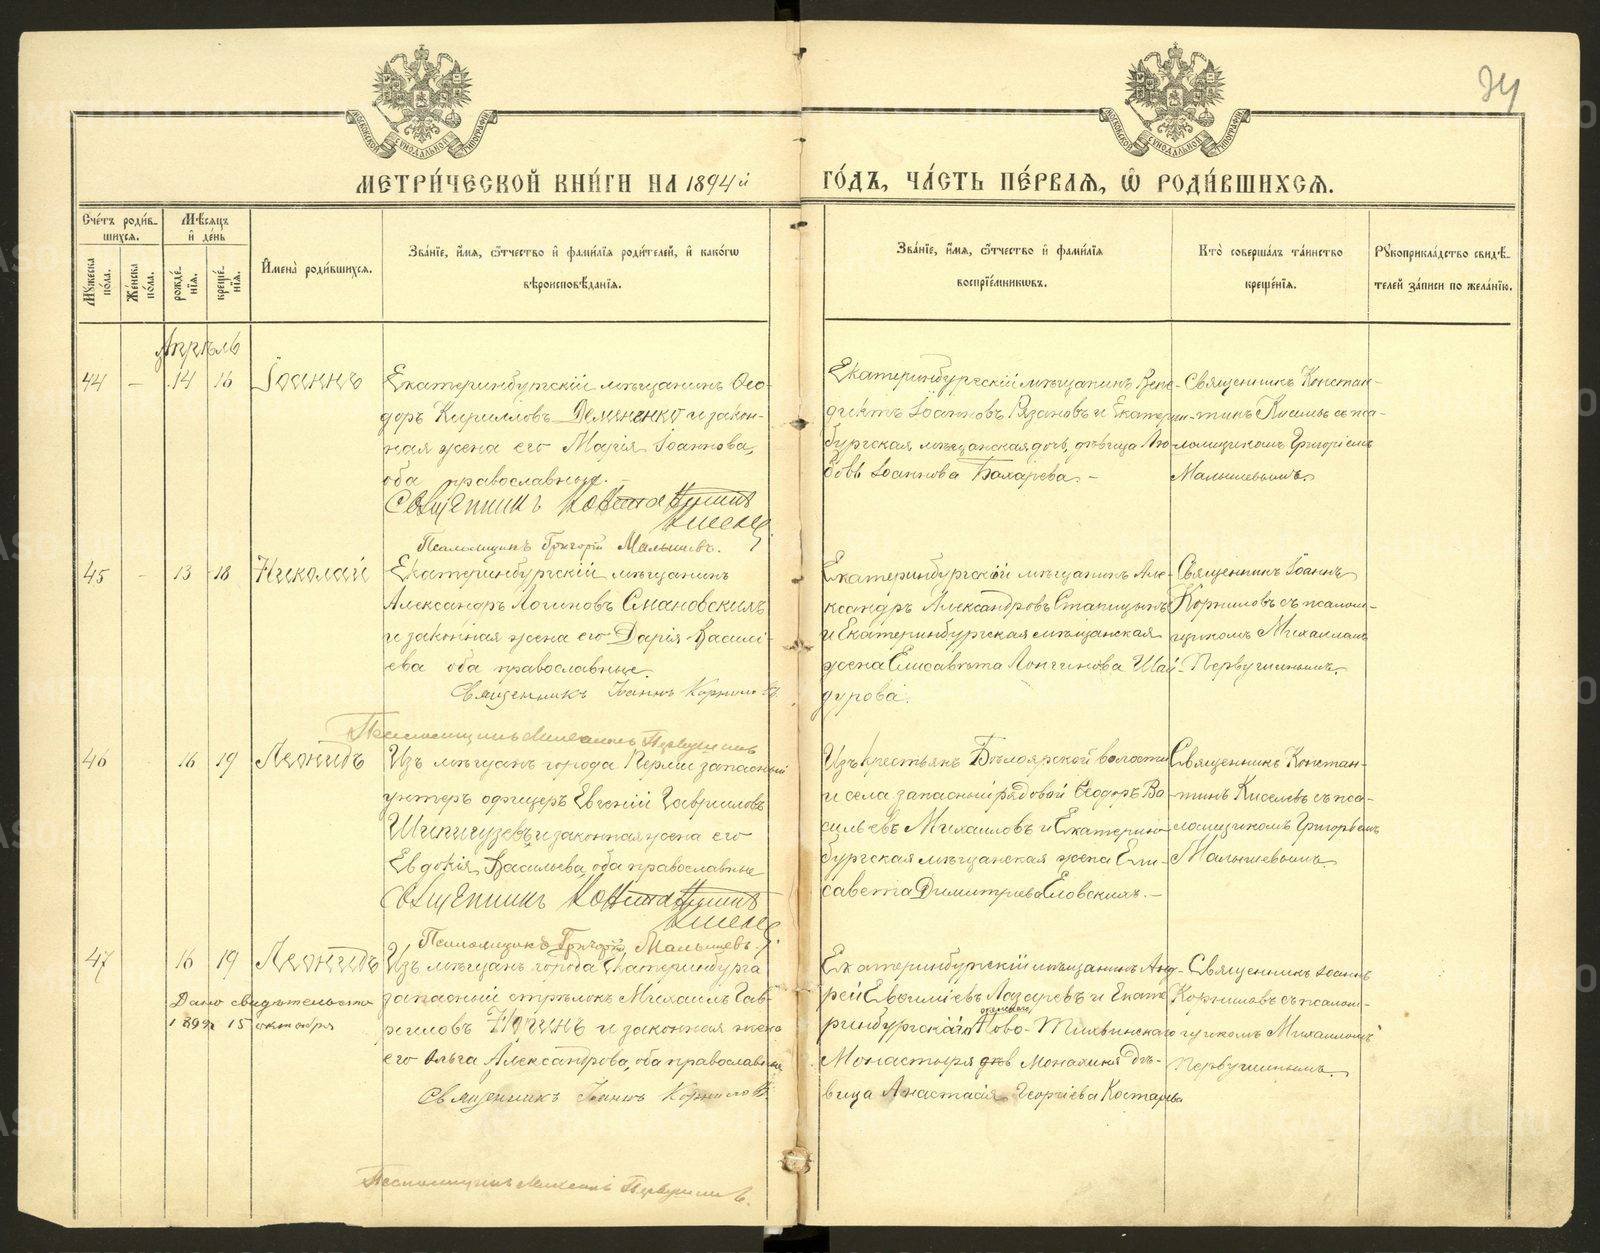 34
МОСКОВСКОЙ СѴНОДАЛЬНОЙ ТИПОГРАФІИ
МОСКОВСКОЙ СѴНОДАЛЬНОЙ ТИПОГРАФІИ
МЕТРИ́ЧЕСКОЙ КНИ́ГИ НА 1894 й
ГО́ДЪ, ЧА́СТЬ ПЕ́РВАѦ, Ѡ РОДИ́ВШИХСѦ.
Сче́тъ роди́в-
шихсѧ.
Мꙋ́жеска по́ла.
Же́нска по́ла.
Мѣ́сѧцъ и де́нь
рожде́нїѧ.
креще́нїѧ.
Имена̀ роди́вшихсѧ.
Зва́нїе, и́мѧ, ѻ́тчество и фами́лїѧ роди́телей, и како́гѡ
вѣроисповѣ́данїѧ.
Зва́нїе, и́мѧ, ѻ́тчество и фами́лїѧ
воспрїе́мникѡвъ.
Кто̀ соверша́лъ та́инство
креще́нїѧ.
Рꙋкоприкла́дство свидѣ́-
телей за́писи по жела́нїю.
Апрѣль
44 — 14 16 Іоаннъ
Екатеринбургскій мѣщанинъ Ѳео-
доръ Кирилловъ Демененко и закон-
ная жена его Марія Іоаннова,
оба православные.
Священникъ Константинъ
Киселевъ
Псаломщикъ Григорій Малышевъ.
Екатеринбургскій мѣщанинъ Вене-
диктъ Іоанновъ Рязановъ и Екатерин-
бургская мѣщанская дочь, дѣвица Лю-
бовь Іоаннова Бахарева. —
Священникъ Констан-
тинъ Киселевъ съ пса-
ломщикомъ Григоріемъ
Малышевымъ.
45 — 13 18 Николай
Екатеринбургскій мѣщанинъ
Александръ Логиновъ Смановскихъ
и законная жена его Дарія Василі-
ева оба православные.
Священникъ Іоаннъ Корниловъ
Псаломщикъ Михаилъ Первушинъ
Екатеринбургскій мѣщанинъ Але-
ксандръ Александровъ Стапицынъ
и Екатеринбургская мѣщанская
жена Елисавета Лонгинова Шай-
дурова.
Священникъ Іоаннъ
Корниловъ съ псалом-
щикомъ Михаиломъ
Первушинымъ.
46 16 19 Леонидъ
Изъ мѣщанъ города Перми запасный
унтеръ офицеръ Евгеній Гавриловъ
Шипигузевъ и законная жена его
Евдокія Васильева, оба православные
Священникъ Константинъ
Киселевъ
Псаломщикъ Григорій Малышевъ.
Изъ крестьянъ Бѣлоярской волости
и села запасный рядовой Ѳеодоръ Ва-
сильевъ Михаиловъ и Екатерин-
бургская мѣщанская жена Ели-
савета Димитріева Еловскихъ. —
Священникъ Констан-
тинъ Киселевъ съ пса-
ломщикомъ Григорьемъ
Малышевымъ.
47 16 19 Леонидъ
Дано свидѣтельство
1899г 15 октября
Изъ мѣщанъ города Екатеринбурга
запасный стрѣлокъ Михаилъ Гав-
риловъ и законная жена
его Ольга Александрова, оба православные
Священникъ Іоаннъ Корниловъ.
Псаломщикъ Михаилъ Первушинъ.
Екатеринбургскій мѣщанинъ Анд-
рей Евѳиміевъ Лазаревъ и Екате-
ринбургскаго Ново-Тихвинскаго
Монастыря монахиня дѣ-
вица Анастасія Георгіева Костарева
Священникъ Іоаннъ
Корниловъ съ псалом-
щикомъ Михаиломъ
Первушинымъ.